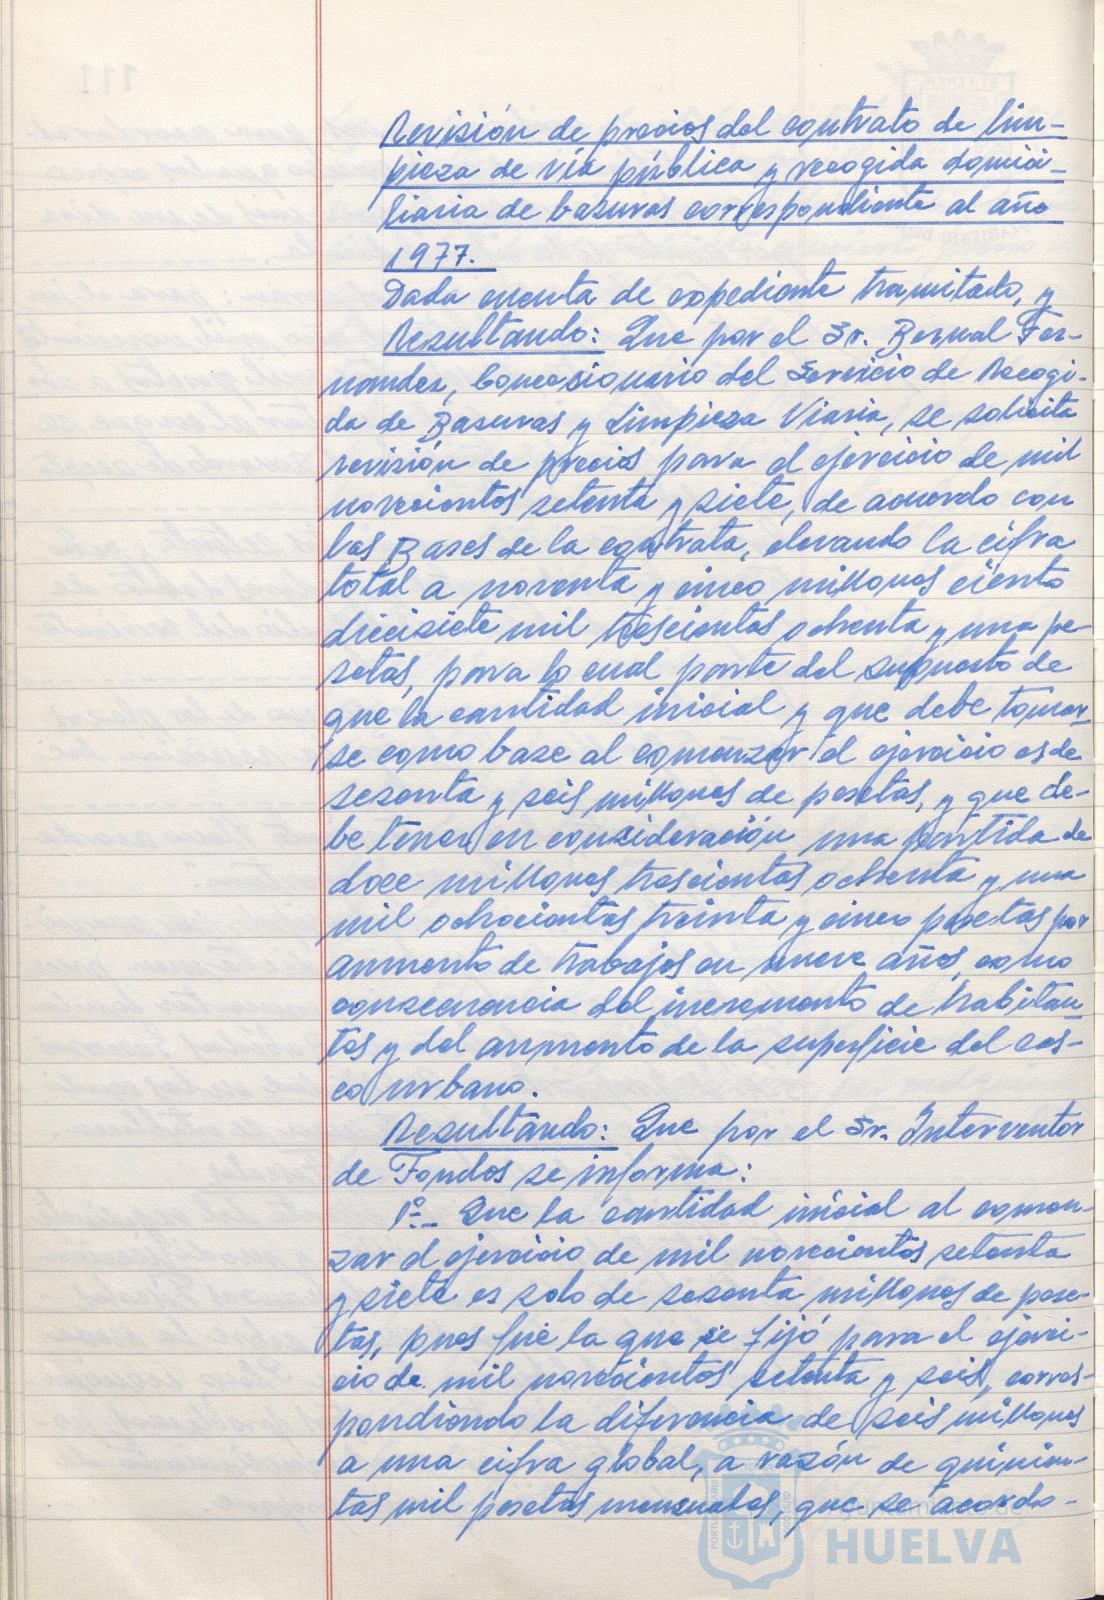 Revisión de precios del contrato de lim-
pieza de vía pública y recogida domici-
liaria de basuras correspondiente al año
1977.
Dada cuenta de expediente tramitado, y
Resultando: Que por el Sr. Bernal Fer-
nandez, Concesionario del Servicio de Recogi-
da de Basuras y Limpieza Viaria, se solicita
revisión de precios para el ejercicio de mil
novecientos setenta y siete, de acuerdo con
las Bases de la contrata, elevando la cifra
total a noventa y cinco millones ciento
diecisiete mil trescientas ochenta y una pe-
setas, para lo cual parte del supuesto de
que la cantidad inicial y que debe tomar-
se como base al comenzar el ejercicio es de
sesenta y seis millones de pesetas, y que de-
be tener en consideración una partida de
doce millones trescientas ochenta y una
mil ochocientas treinta y cinco pesetas por
aumento de trabajos en nueve años, como
consecuencia del incremento de habitan-
tes y del aumento de la superficie del cas-
co urbano.
Resultando: Que por el Sr. Interventor
de Fondos se informa:
1º- Que la cantidad inicial al comen-
zar el ejercicio de mil novecientos setenta
y siete es solo de sesenta millones de pese-
tas, pues fué la que se fijó para el ejerci-
cio de mil novecientos setenta y seis, corres-
pondiendo la diferencia de seis millones
a una cifra global, a razón de quinien-
tas mil pesetas mensuales, que se acordo-
Ayuntamiento de
HUELVA